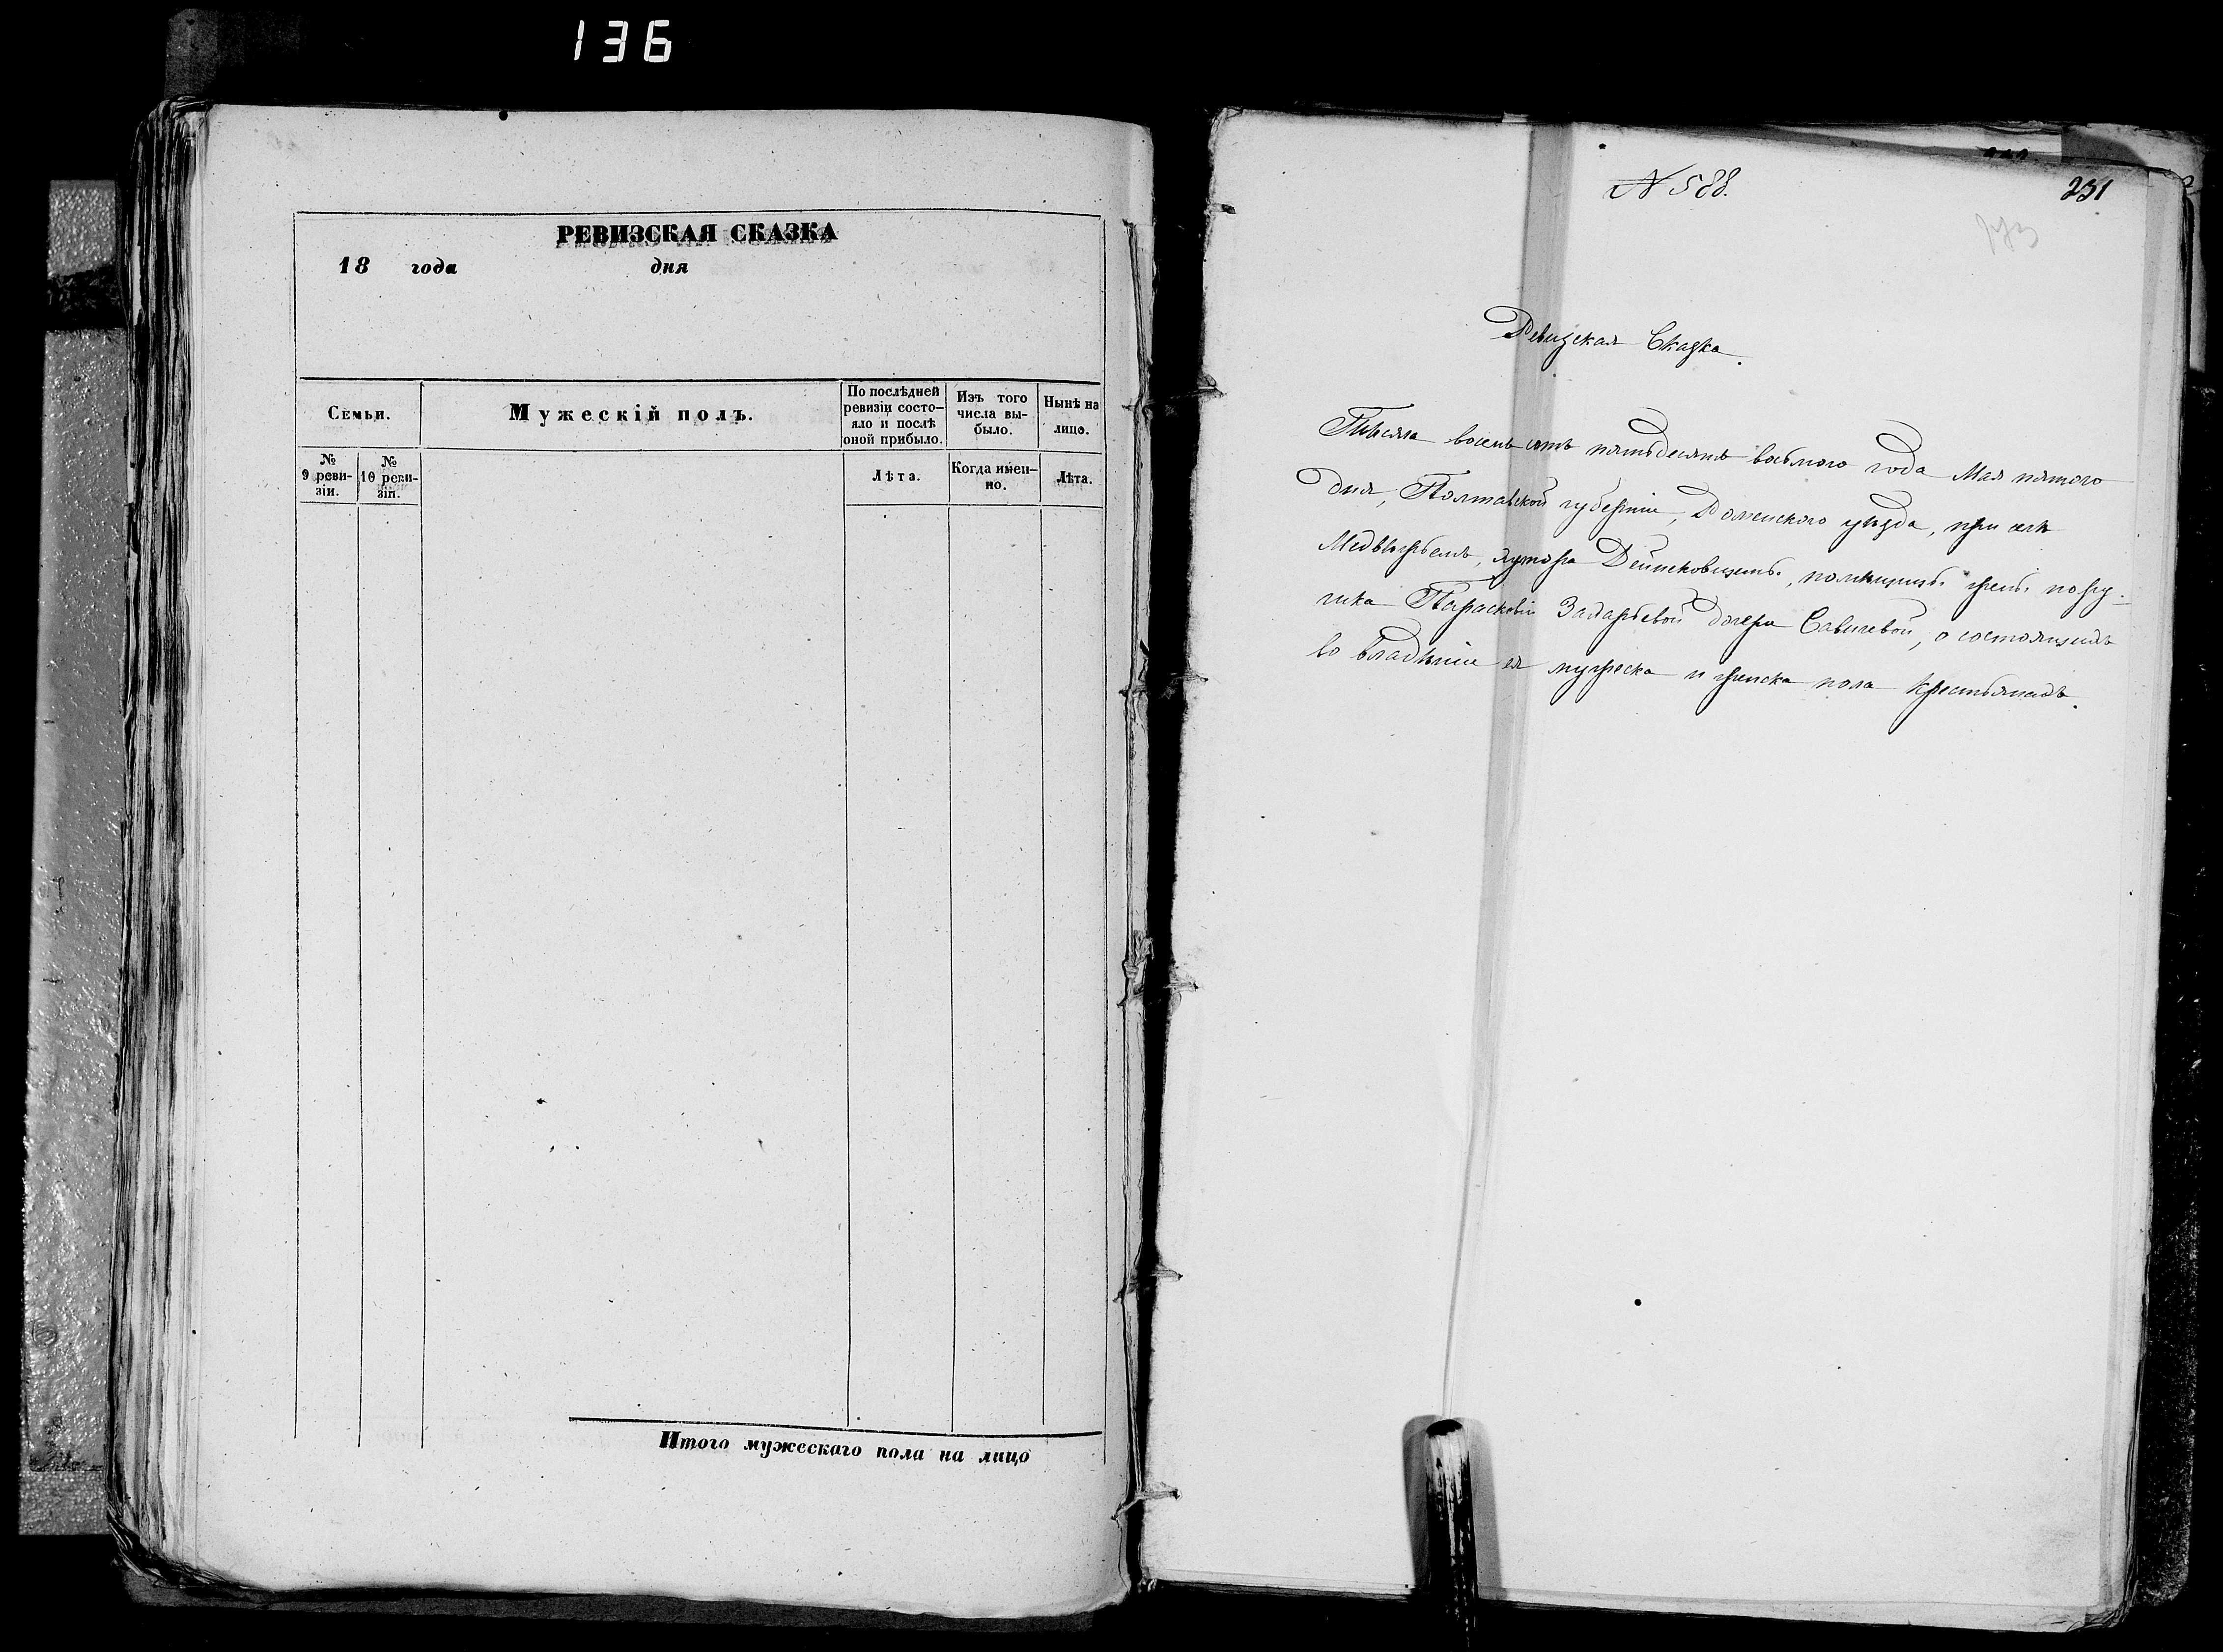 136
РЕВИЗСКАЯ СКАЗКА
18 года дня
Семьи.
Мужескій полъ.
По послѣдней ревизіи состо-
яло и послѣ оной прибыло.
Изъ того числа вы-
было.
Нынѣ на лицо.
№ 9 реви-
зіи.
№ 10 реви-
зіи.
Лѣта.
Когда имен-
но.
Лѣта.
Итого мужескаго пола на лицо
№ 588.
231
Ревизская Сказка.
Тысяча восемь сотъ пятьдесятъ восьмого года Мая пятого
дня, Полтавской губерніи, Роменского уѣзда, при селѣ
хутора помѣщицы жены пору-
чика Парасковіи Захарьевой дочери Савичевой, о состоящихъ
во владѣніи ея мужеска и женска пола крестьянахъ.